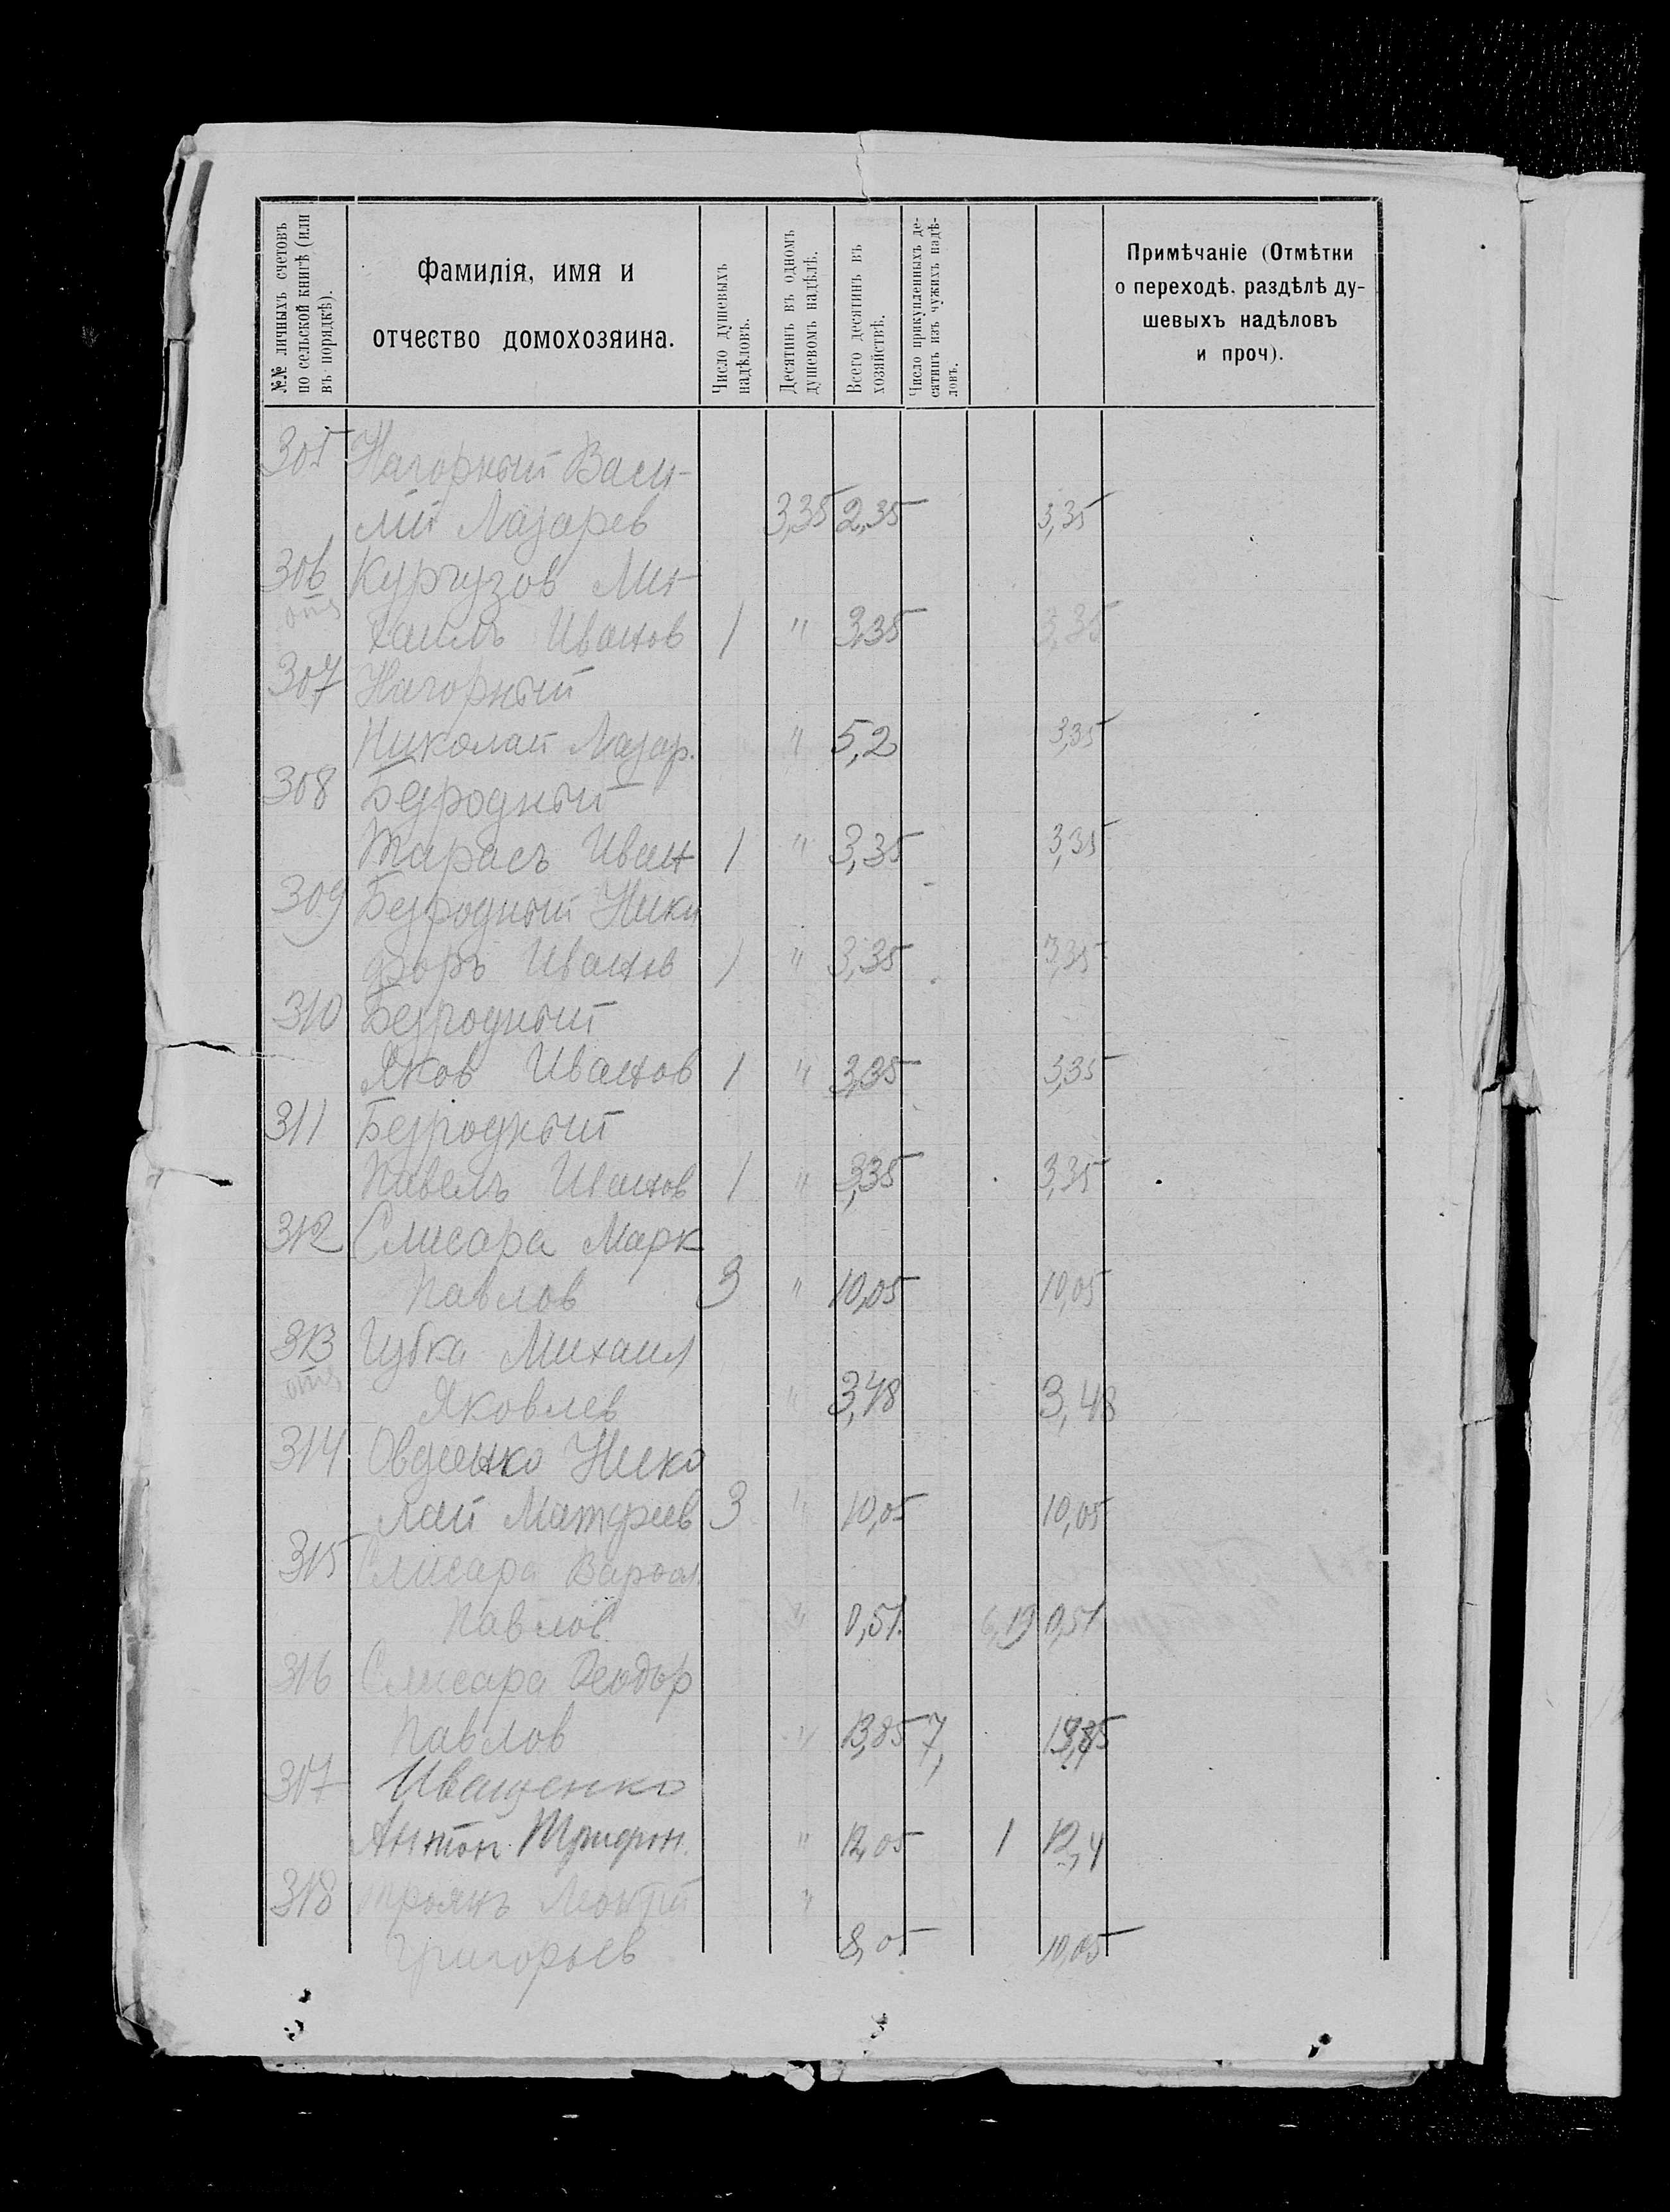 №№ личныхъ счетовъ
по сельской книгѣ (или
въ порядкѣ).
Фамилія, имя и
отчество домохозяина.
Число душевыхъ
надѣловъ.
Десятинъ въ одномъ
душевомъ надѣлѣ.
Всего десятинъ въ
хозяйствѣ.
Число прикупленныхъ де-
сятинъ изъ чужихъ надѣ-
ловъ.
Примѣчаніе (Отмѣтки
о переходѣ, раздѣлѣ ду-
шевыхъ надѣловъ
и проч).
305 Нагорный Васи-
лий Лазарев 3,35 2,35 3,35
306 Кургузов Ми-
хаилъ Иванов 1 " 3,35 3,35
307 Нагорный
Николай Лазар. " 5,2 3,35
308 Безродный
Тарасъ Иван 1 " 3,35 3,35
309 Безродный Ники
форъ Иванов 1 " 3,35 3,35
310 Безродный
Яков Иванов 1 " 3,35 3,35
311 Безродный
Павелъ Иванов 1 " 3,35 3,35
312 Слисара Марк
Павлов 3 " 10,05 10,05
313 Губка Михаил
Яковлев " 3,48 3,48
314 Овдиенко Нико
лай Матфеев 3 " 10,05 10,05
315 Слисара Варфол.
Павлов " 0,51. 6,19 0,51
316 Слисара Феодор
Павлов " 13,85 7, 13,85
317 Иващенко
Антон Трифон. " 12,05 1 12,4
318 Троянъ Леонтий "
Григорьев 8,05 10,05